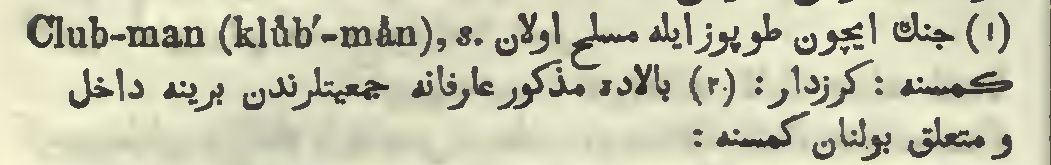 Club-man (klŭb′-măn), s. (١) جنك ایچون طوپوز ایله مسلح اولان
كمسنه : كرزدار : (٢) بالاده مذكور عارفانه جمعیتلرندن برینه داخل
و متعلق بولنان كمسنه :